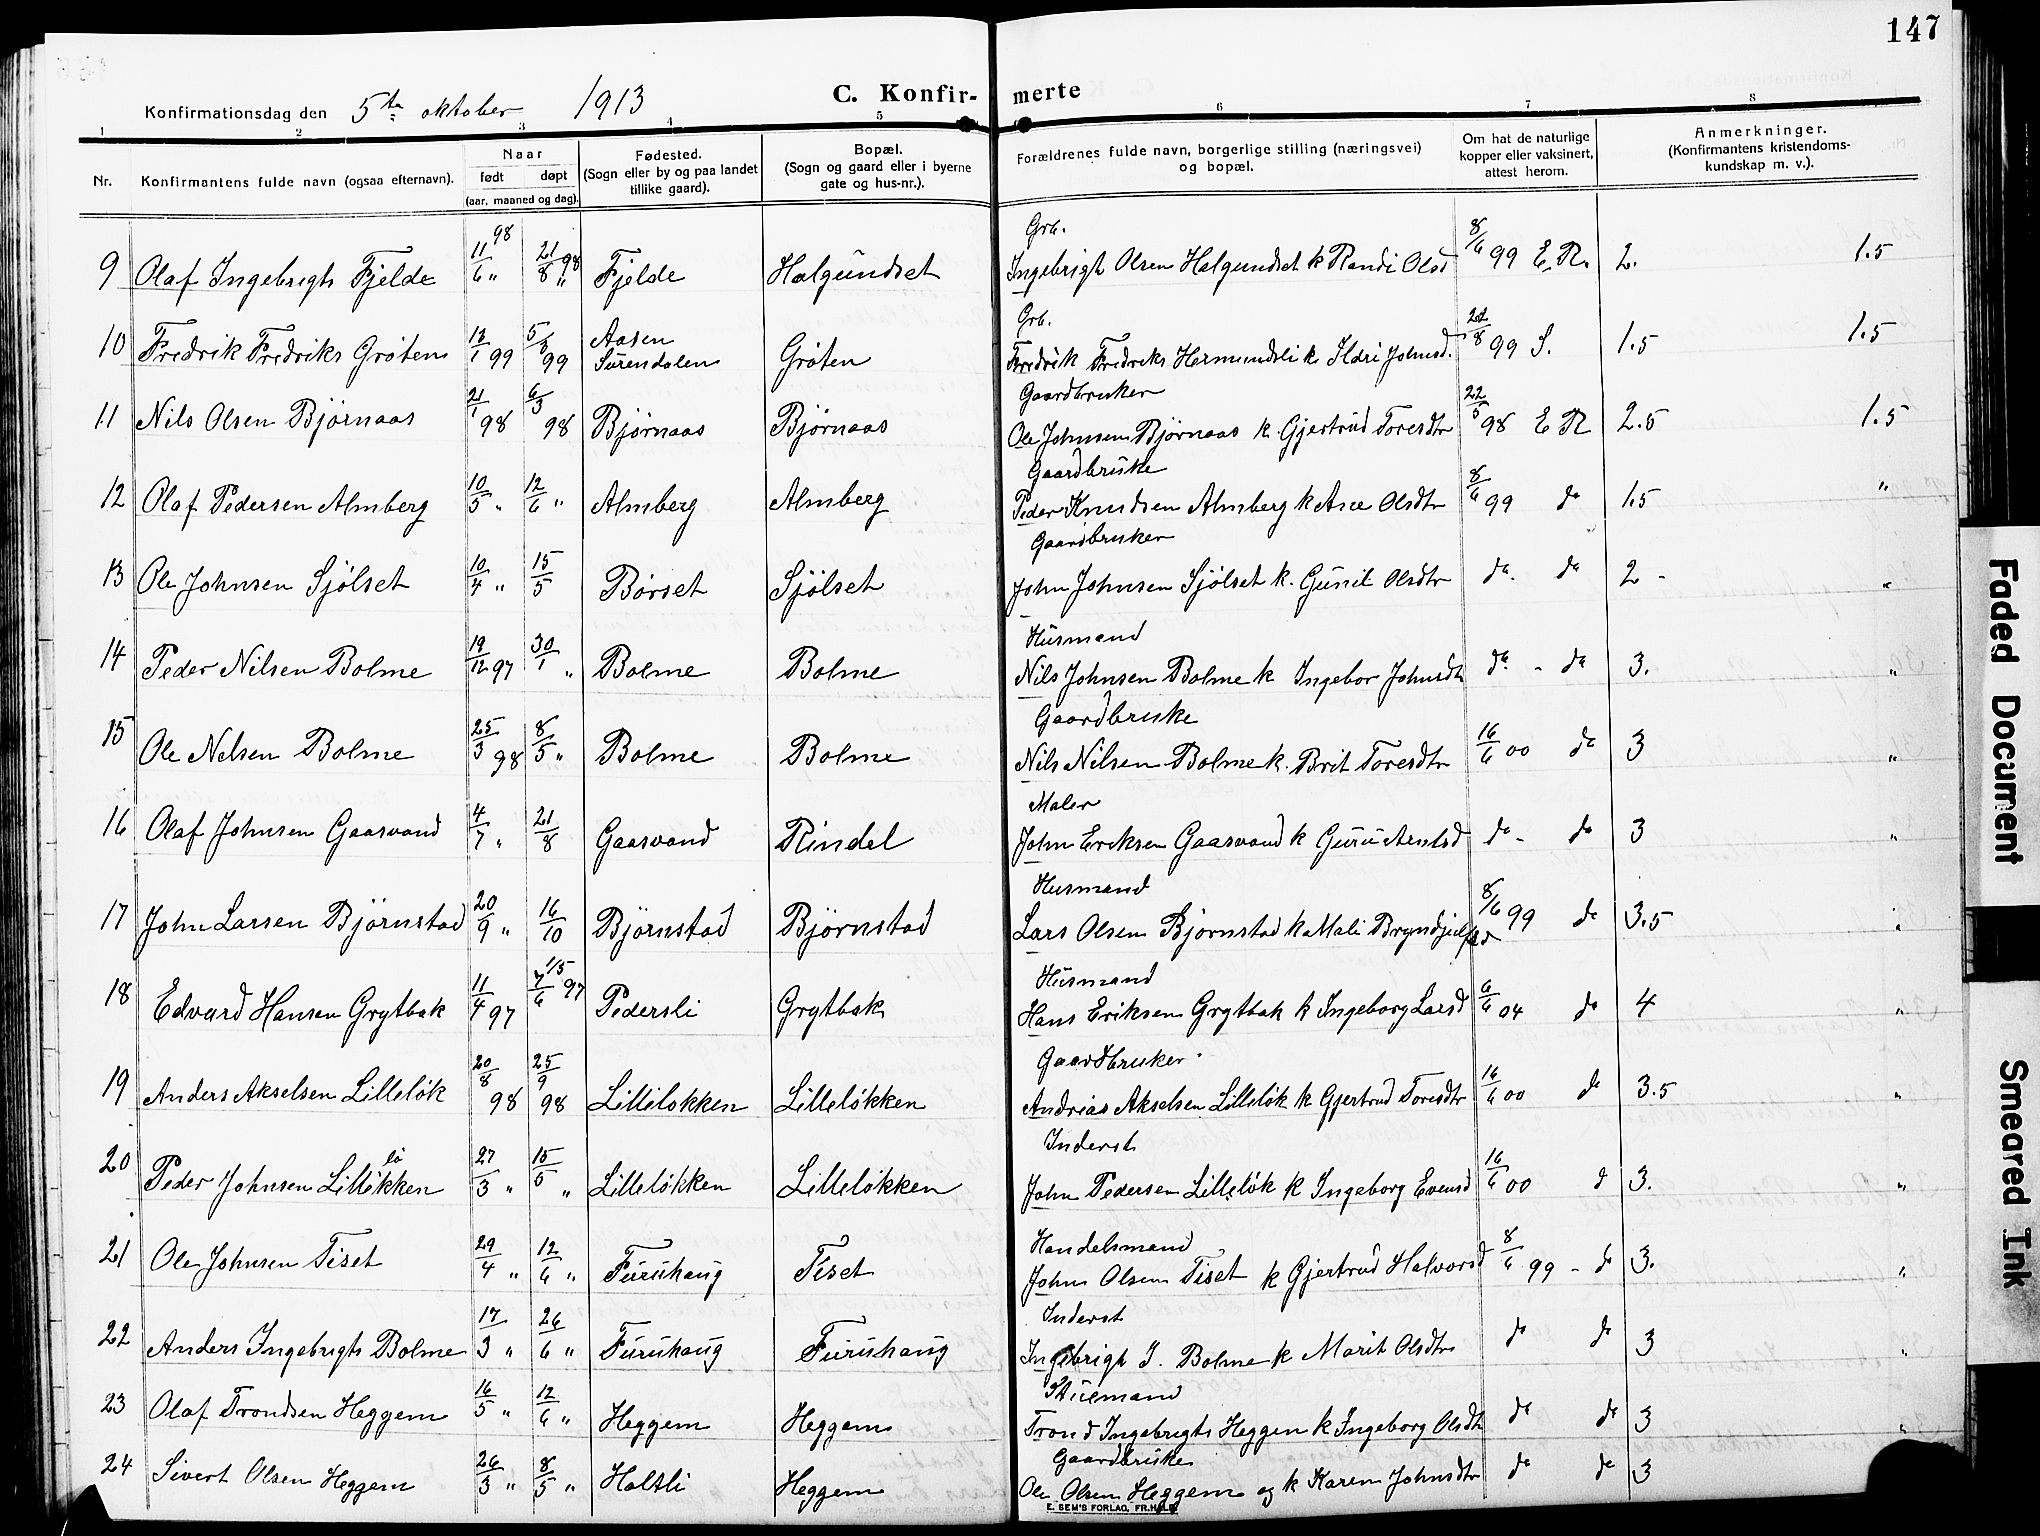 147
C. Konfir- merte
Konfirmationsdag den 5te oktober 1913
1 2 3 4 5 6 7 8
Nr. Konfirmantens fulde navn (ogsaa efternavn). Naar født døpt (aar, maaned og dag). Fødested. (Sogn eller by og paa landet tillike gaard). Bopæl. (Sogn og gaard eller i byerne gate og hus-nr.). Forældrenes fulde navn, borgerlige stilling (næringsvei) og bopæl. Om hat de naturlige kopper eller vaksinert, attest herom. Anmerkninger. (Konfirmantens kristendoms- kundskap m. v.).
Grb.
9 Olaf Ingebrigts Fjelde 11/6 98 21/8 98 Fjelde Halgundset Ingebrigt Olsen Halgundset k Randi Olsd 8/6 99 E. R. 2. 1.5
Grb.
10 Fredrik Fredriks Grøten 13/1 99 5/3 99 Aasen Surendalen Grøten Fredrik Fredriks Hermundsli k Ildri Johnsd. 22/8 99 S. 1.5 1.5
Gaardbruker
11 Nils Olsen Bjørnaas 21/1 98 6/3 98 Bjørnaas Bjørnaas Ole Johnsen Bjørnaas k. Gjertrud Toresdtr 22/5 98 E R 2.5 1.5
Gaardbruke
12 Olaf Pedersen Almberg 10/5 " 12/6 " Almberg Almberg Peder Knudsen Almberg k Ane Olsdtr 8/6 99 do 1.5 "
Gaardbruker
13 Ole Johnsen Sjølset 10/4 " 15/5 Børset Sjølset John Johnsen Sjølset k. Gunil Olsdtr do. do 2 - "
Husmand
14 Peder Nilsen Bolme 19/12 97 30/1 " Bolme Bolme Nils Johnsen Bolme k Ingebor Johnsdt do. - do 3. "
Gaardbruke
15 Ole Nelsen Bolme 25/3 98 8/5 " Bolme Bolme Nils Nilsen Bolme k. Brit Toresdtr 16/6 00 do 3 "
Maler
16 Olaf Johnsen Gaasvand 4/7 " 21/8 Gaasvand Rindel John Eriksen Gaasvand k Guru Arntsd do - do 3 "
Husmand
17 John Larsen Bjørnstad 20/9 " 16/10 Bjørnstad Bjørnstad Lars Olsen Bjørnstad k Mali Bryndjulfsd 8/6 99 do 3.5 "
Husmand
18 Edvard Hansen Grytbak 11/4 97 7/6 1/5 97 Pedersli Grytbak Hans Eriksen Grytbak k Ingeborg Larsd 6/6 04 do 4 "
Gaardbruker
19 Anders Akselsen Lilleløk 20/8 98 25/9 98 Lilleløkken Lilleløkken Andrias Akselsen Lilleløk k Gjertrud Toresdtr 16/6 00 do 3.5 "
Inderst
20 Peder Johnsen Lilløkken lø 27/3 " 15/5 " Lilleløkken Lilleløkken John Pedersen Lilleløk k Ingeborg Evensd 16/6 00 d 3. "
Handelsmand
21 Ole Johnsen Tiset 29/4 " 12/6 " Furuhaug Tiset John Olsen Tiset k Gjertrud Halvorsd 8/6 99 - do 3. "
Inderst
22 Anders Ingebrigts Bolme 17/3 " 26/6 " Furuhaug Furuhaug Ingebrigt I. Bolme k Marit Olsdtr do do 3 "
23 Olaf Trondsen Heggem 16/5 " 12/6 " Heggem Heggem Trond Ingebrigts Heggem k Ingeborg Olsdt do do 3 "
Gaardbruke
24 Sivert Olsen Heggem 26/3 " 8/5 " Holtli Heggem Ole Olsen Heggem og k Karen Johnsdtr do do 3
E. SEM'S FORLAG, FR.HALD
Faded Document
Smeared Ink